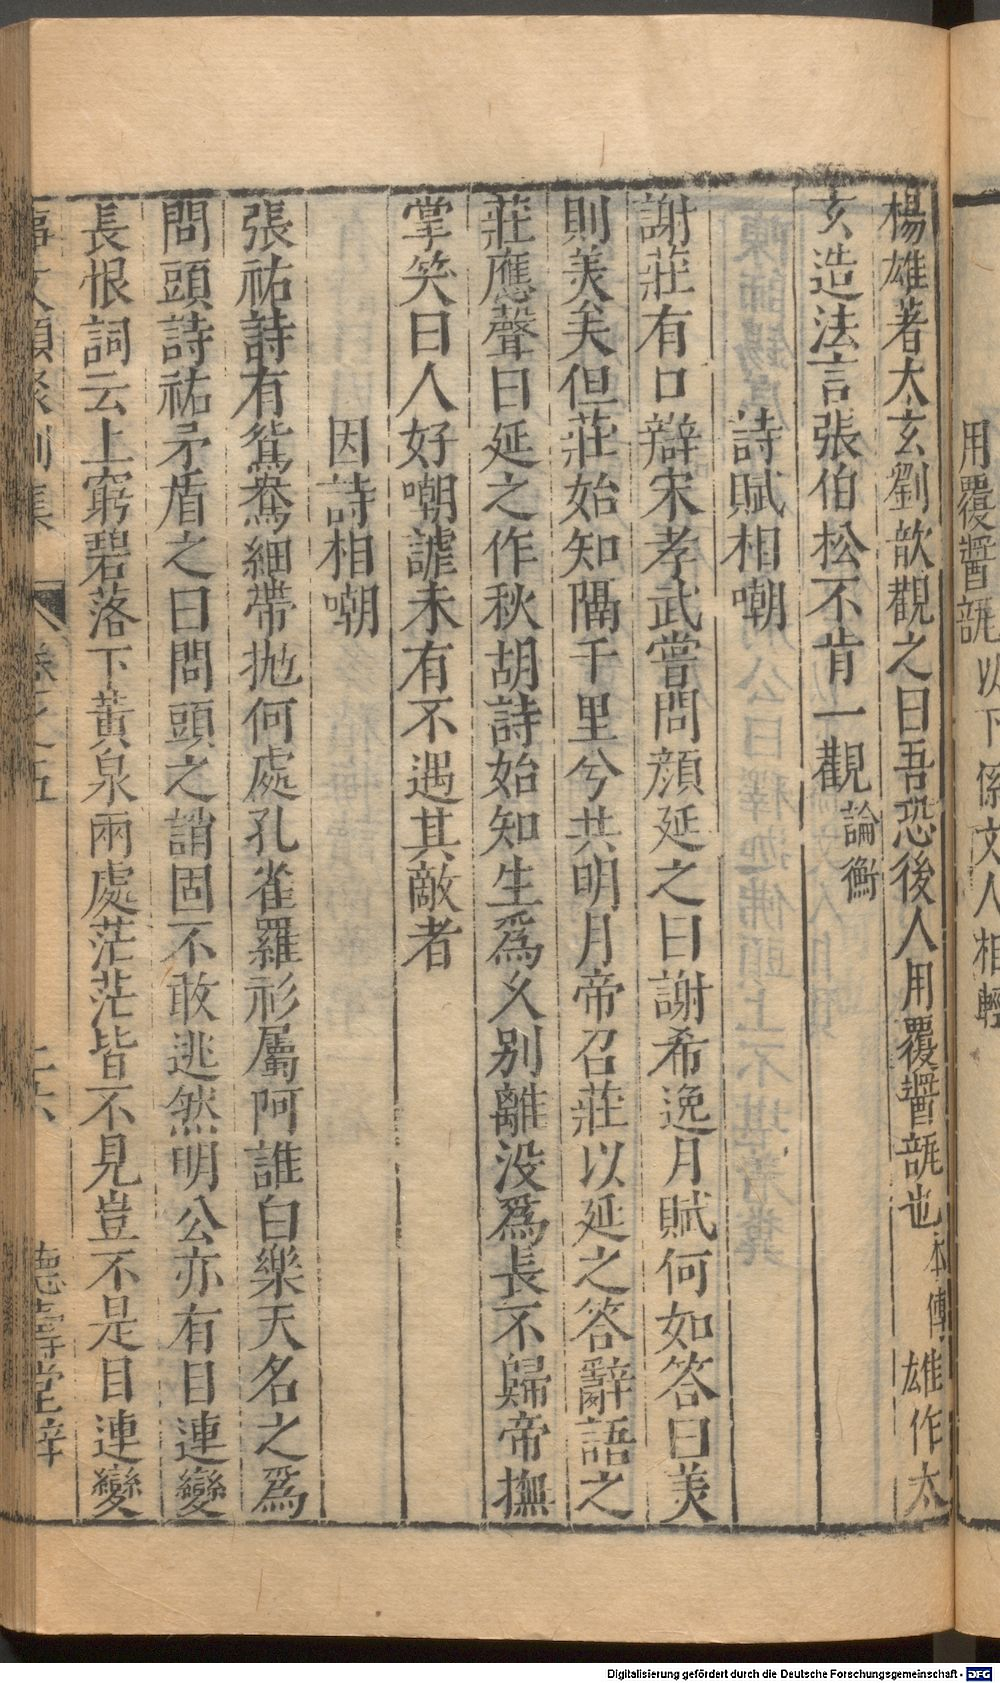 用覆醬瓿以下係文人相輕
楊雄著太玄劉歆觀之曰吾恐後人用覆醬瓿也本傳雄作太
玄造法言張伯松不肯一觀論衡
詩賦相嘲
謝莊有口辯宋孝武嘗問顔延之曰謝希逸月賦何如答曰美
則美矣但莊始知隔千里兮共明月帝召莊以延之答辭語之
莊應聲曰延之作秋胡詩始知生爲久别離没爲長不歸帝撫
掌笑曰人好嘲謔未有不遇其敵者
因詩相嘲
張祐詩有鴛鴦細帶抛何處孔雀羅衫屬阿誰白樂天名之爲
問頭詩祐矛盾之曰問頭之誚固不敢逃然明公亦有目連變
長恨詞云上窮碧落下黃泉兩處茫茫皆不見豈不是目連變
事文類聚别集 卷之五 十六 德壽堂梓
Digitalisierung gefördert durch die Deutsche Forschungsgemeinschaft - DFG